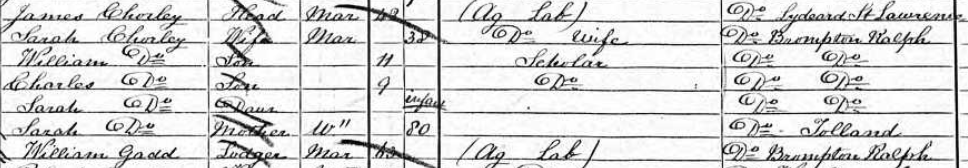 James Chorley Head Mar 42 (Ag Lab) Do Lydeard St Lawrence
Sarah Chorley Wife Mar 38 Do Wife Do Brompton Ralph
William Do Son 11 Scholar Do Do
Charles Do Son 9 Do Do Do
Sarah Do Daur infant Do Do
Sarah Do Mother W" 80 Do Tolland
William Gadd Lodger Mar 63 (Ag Lab) Do Brompton Ralph